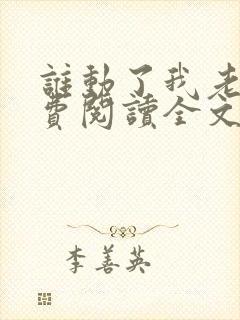 誰動了我老
費閱讀全文
李善英